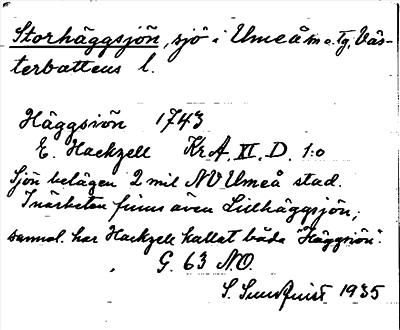 Storhäggsjön, sjö i Umeå sn o. tg, Väs-
terbottens l.
Häggsiön 1743
E. Hackzell KrA. XI. D. 1:0
Sjön belägen 2 mil NV Umeå stad.
I närheten finns även Lillhäggsjön;
sannol. har Hackzell kallat båda "Häggsiön".
G. 63 NO.
S. Sundquist 1935